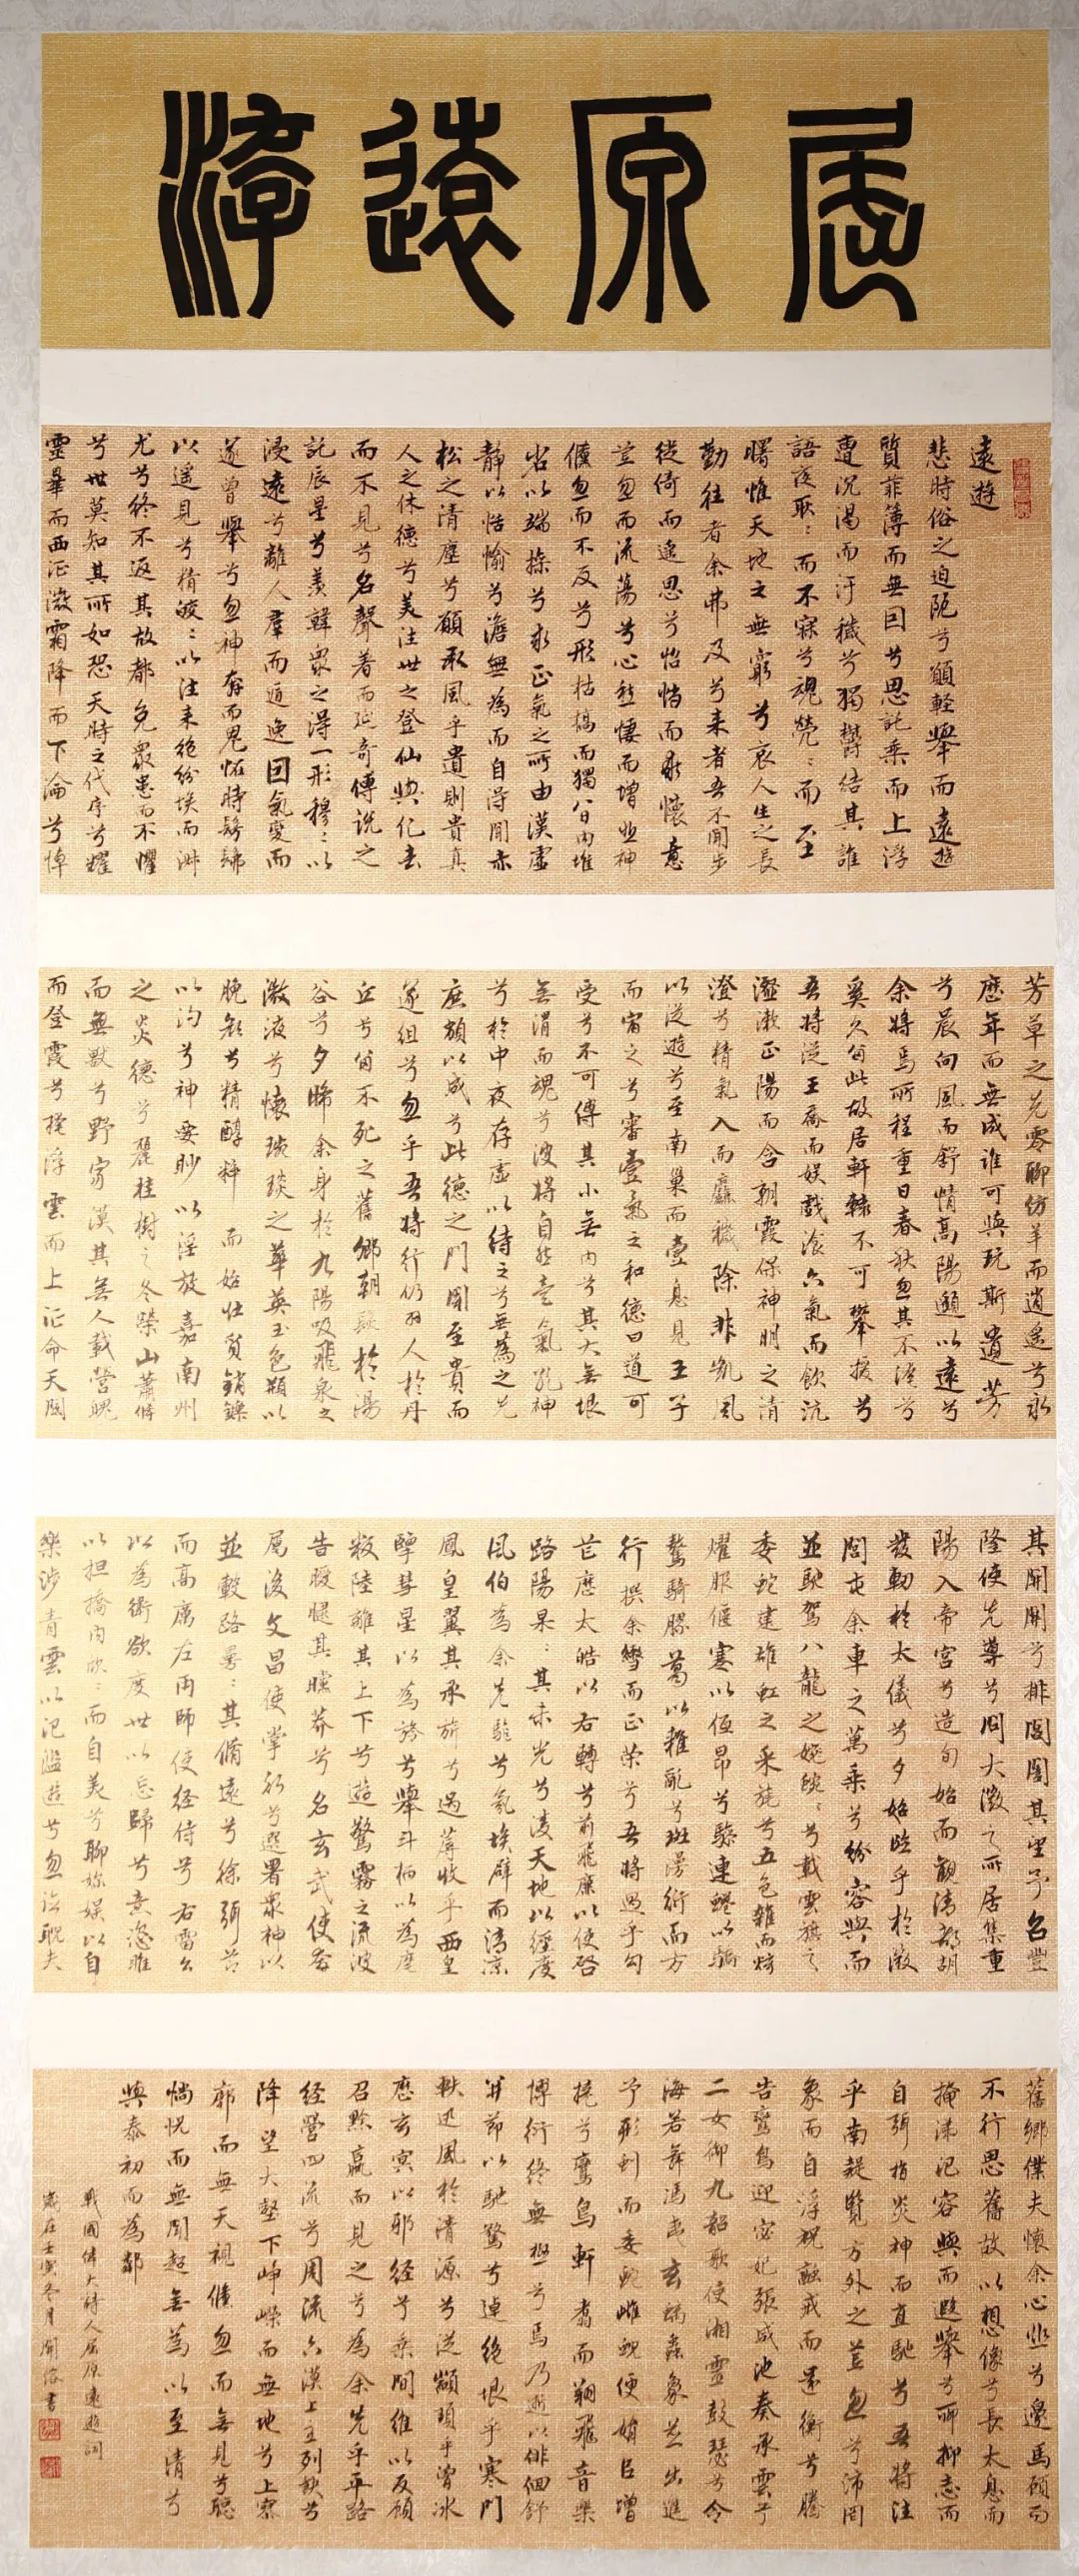 屈原遠游
遠遊
悲時俗之迫阨兮願輕舉而遠遊
質菲薄而無因兮焉託乘而上浮
遭沉濁而汙穢兮獨鬱結其誰
語夜耿〻而不寐兮魂煢〻而至
曙惟天地之無窮兮哀人生之長
勤往者余弗及兮来者吾不聞步
徙倚而遙思兮怊惝而永懷意
荒忽而流蕩兮心愁悽而增悲神
儵忽而不反兮形枯槁而獨留内惟
省以端操兮求正氣之所由漠虛
靜以恬愉兮澹無為而自得聞赤
松之清塵兮願承風乎遺則貴真
人之休德兮美往世之登仙與化去
而不見兮名聲著而延奇傅說之
託辰星兮羨韓衆之得一形穆〻以
浸遠兮離人羣而遁逸因氣變而
遂曾舉兮忽神奔而鬼怪時髣髴
以遙見兮精皎〻以往来絕紛埃而淑
尤兮終不返其故都免衆患而不懼
兮世莫知其所如恐天時之代序兮耀
靈曄而西征微霜降而下淪兮悼
芳草之先零聊仿羊而逍遙兮永
歷年而無成誰可與玩斯遺芳
兮晨向風而舒情高陽邈以遠兮
余將焉所程重曰春秋忽其不淹兮
奚久留此故居軒轅不可攀援兮
吾將從王喬而娛戲湌六氣而飲沆
瀣漱正陽而含朝霞保神明之清
澄兮精氣入而麤穢除非凱風
以從遊兮至南巢而壹息見王子
而宿之兮審壹氣之和德曰道可
受兮不可傳其小無内兮其大無垠
無滑而魂兮彼將自然壹氣孔神
兮於中夜存虛以待之兮無為之先
庶類以成兮此德之門聞至貴而
遂徂兮忽乎吾將行仍羽人於丹
丘兮留不死之舊鄉朝濯於湯
谷兮夕晞余身於九陽吸飛泉之
微液兮懷琬琰之華英玉色頩以
脕顏兮精醇粹而始壯質銷鑠
以汋兮神要眇以淫放嘉南州
之炎德兮麗桂樹之冬榮山蕭條
而無獸兮野寂漠其無人載營魄
而登霞兮掩浮雲而上征命天閽
其開關兮排閶闔其望予召豐
隆使先導兮問大微之所居集重
陽入帝宮兮造旬始而觀清都朝
發軔於太儀兮夕始臨乎於微
閭屯余車之萬乘兮紛容與而
並馳駕八龍之婉〻兮載雲旗之
委蛇建雄虹之采旄兮五色雜而炫
耀服偃蹇以低昂兮驂連蜷以驕
驁騎膠葛以雜亂兮斑漫衍而方
行撰余轡而正策兮吾將過乎句
芒歷太皓以右轉兮前飛廉以使啓
路陽杲〻其未光兮凌天地以徑度
風伯為余先驅兮氛埃辟而清涼
鳳皇翼其承旂兮遇蓐收乎西皇
擥彗星以為旍兮舉斗柄以為麾
叛陸離其上下兮遊驚霧之流波
告曖曃其曭莽兮召玄武使奔
屬後文昌使掌行兮選署衆神以
並轂路曼〻其脩遠兮徐弭節
而高厲左雨師使徑侍兮右雷公
以為衛欲度世以忘歸兮意恣睢
以担撟内欣〻而自美兮聊媮娛以自
樂涉青雲以汜濫遊兮忽臨睨夫
舊鄉僕夫懷余心悲兮邊馬顧而
不行思舊故以想像兮長太息而
掩涕汜容與而遐舉兮聊抑志而
自弭指炎神而直馳兮吾將往
乎南疑覽方外之荒忽兮沛罔
象而自浮祝融戒而還衡兮騰
告鸞鳥迎宓妃張咸池奏承雲兮
二女御九韶歌使湘靈鼓瑟兮令
海若舞馮夷玄螭蟲象並出進
兮形而委蛇雌蜺便娟以增
撓兮鸞鳥軒翥而翔飛音樂
博衍終無極兮焉乃逝以俳佪舒
并節以馳騖兮逴絕垠乎寒門
軼迅風於清源兮從顓頊乎曾冰
歷玄冥以邪徑兮乘間維以反顧
召黔嬴而見之兮為余先乎平路
經營四流兮周流六漠上至列缺兮
降望大壑下崢嶸而無地兮上寥
廓而無天視儵忽而無見兮聽
惝怳而無聞超無為以至清兮
與泰初而為鄰
戰國偉大詩人屈原遠遊詞
歲在壬寅冬月開俗書